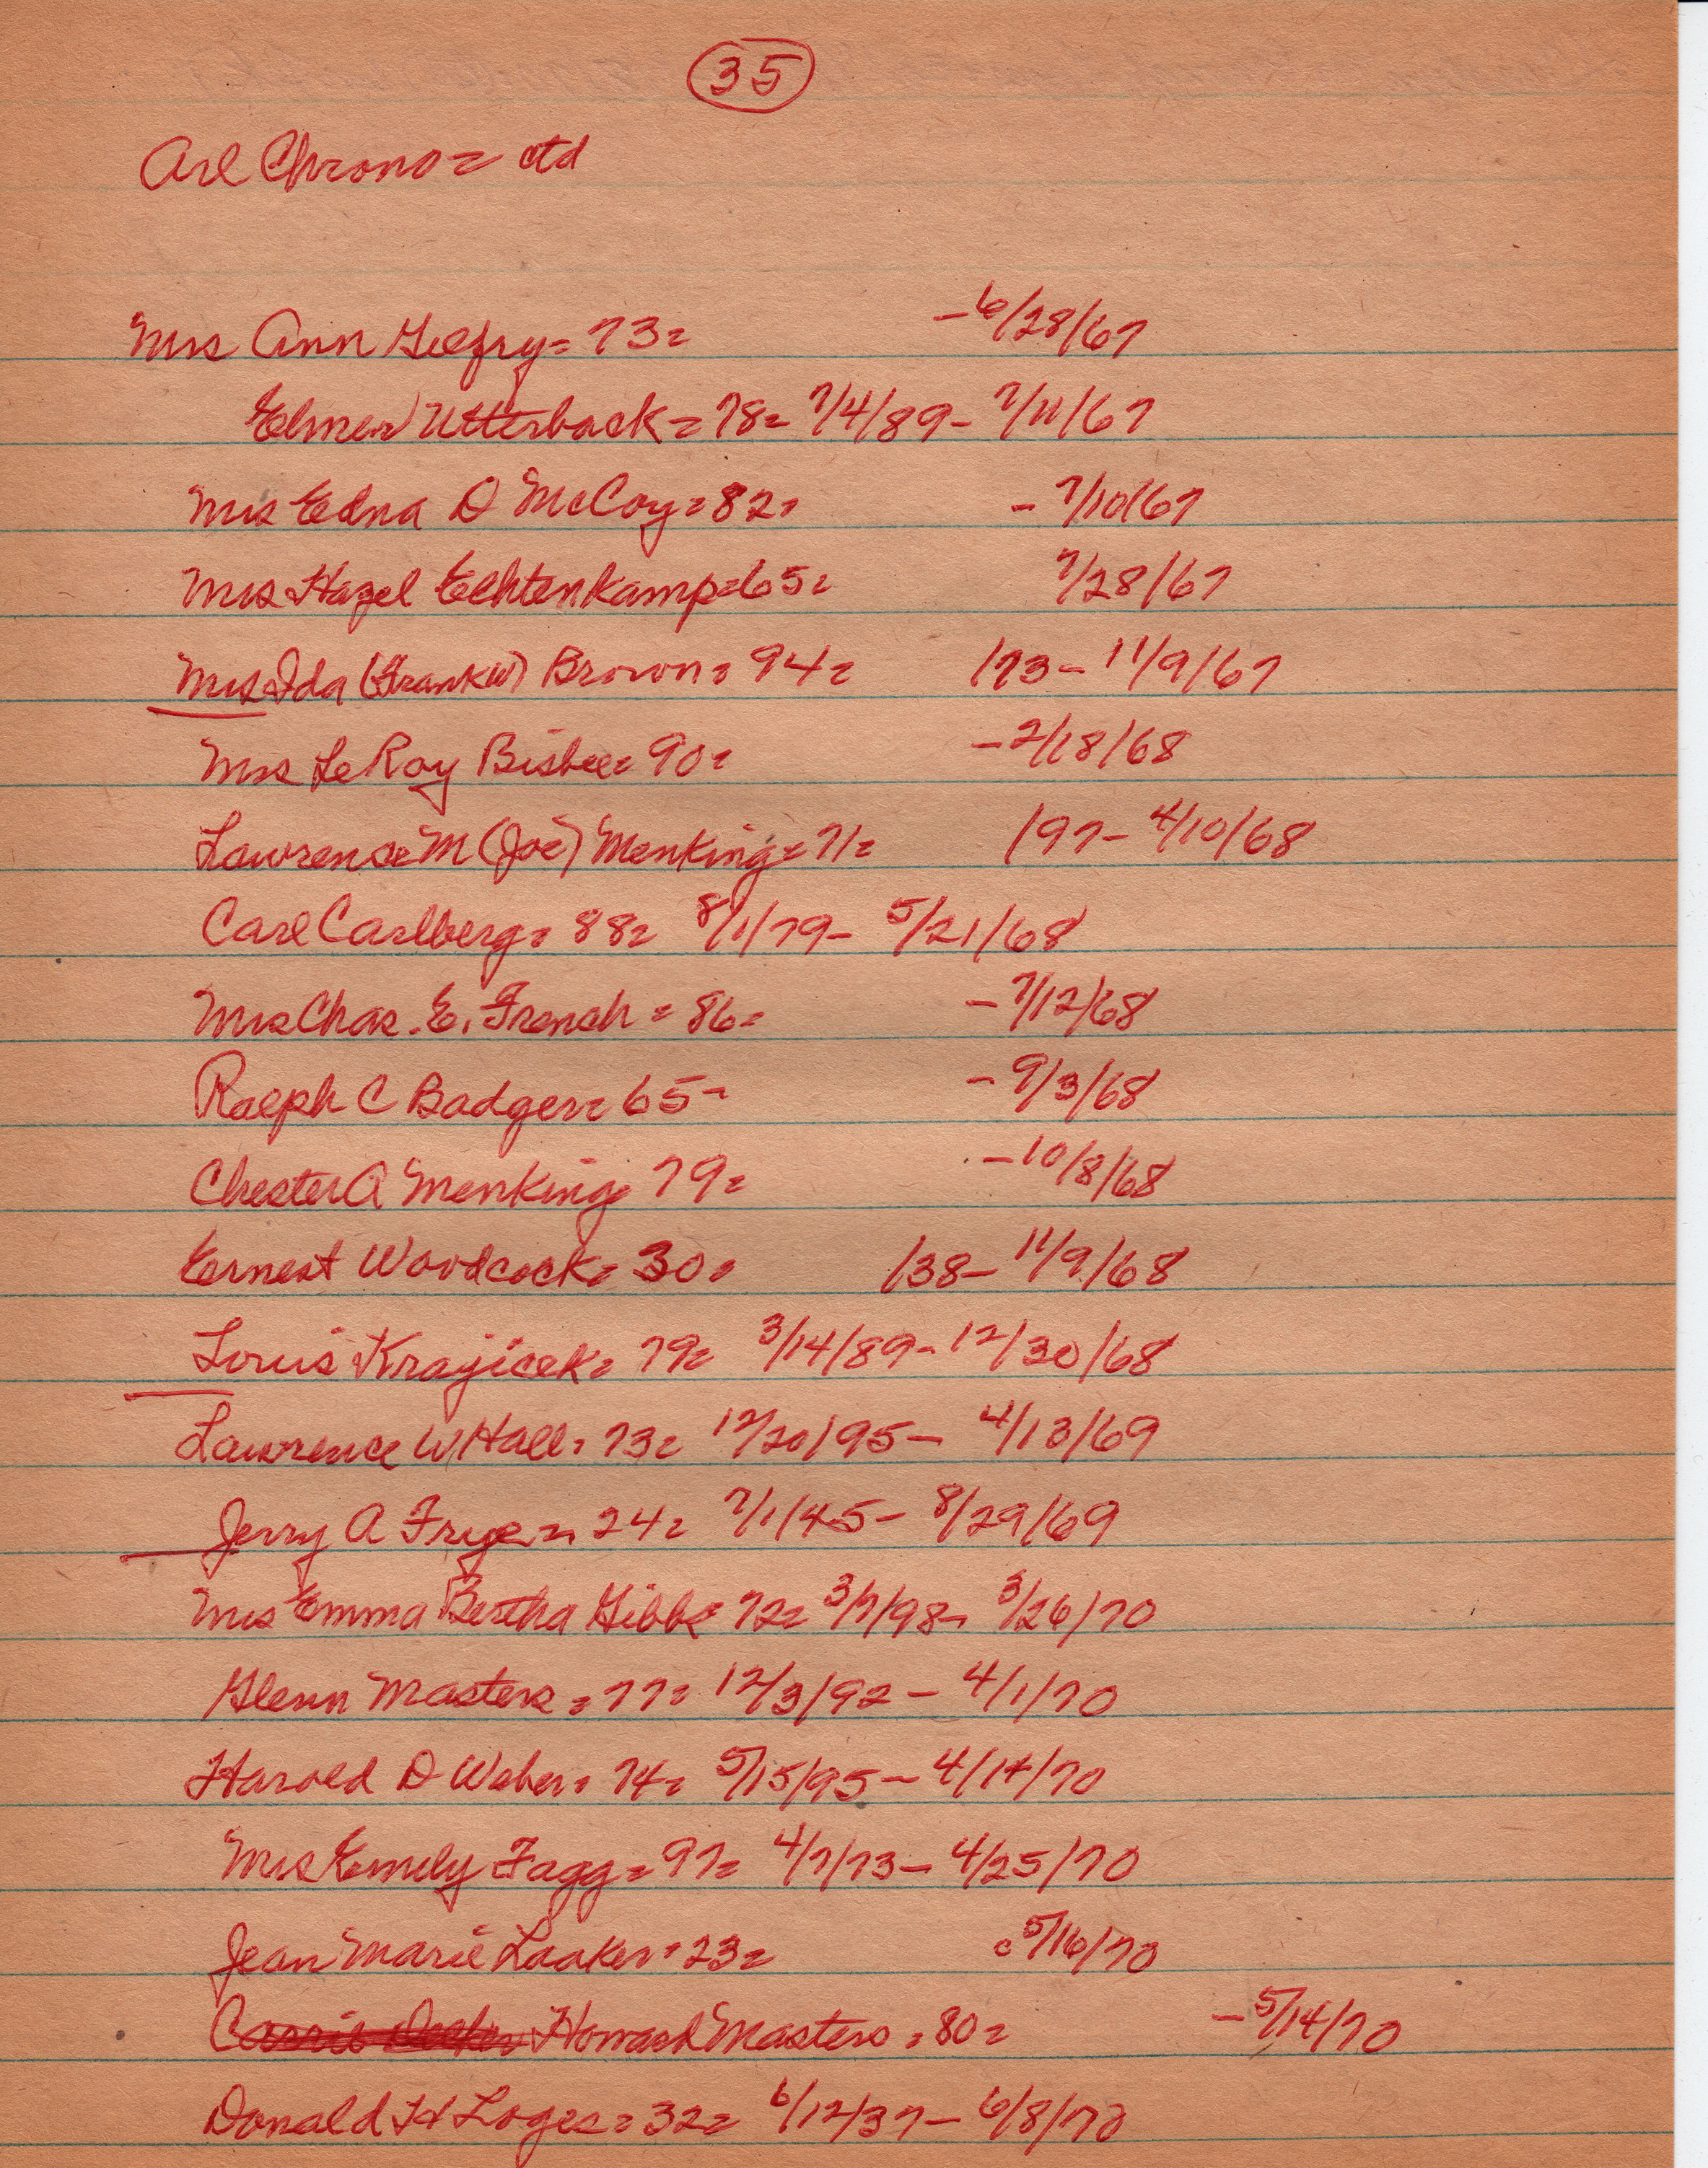 35
Arl Chrono = ctd
Mrs Ann Gilfry = 73 = - 6/28/67
Elmer Utterback = 78 = 7/4/89 - 7/11/67
Mrs Edna D McCoy = 82 = - 7/10/67
Mrs Hazel Echtenkamp = 65 = 7/28/67
Mrs Ida (Frank W) Brown = 94 = /73 - 11/9/67
Mrs LeRoy Bisbee = 90 = - 2/18/68
Lawrence M (Joe) Menking = 71 = /97 - 4/10/68
Carl Carlberg = 88 = 8/1/79 - 5/21/68
Mrs Chas. E. French = 86 = - 7/12/68
Ralph C Badger = 65 - - 9/3/68
Chester A Menking = 79 = - 10/8/68
Ernest Woodcock = 30 = /38 - 11/9/68
Louis Krajicek = 79 = 3/14/89 - 12/30/68
Lawrence W Hall = 73 = 12/20/95 - 4/13/69
Jerry A Frye = 24 = 7/1/45 - 8/29/69
Mrs Emma Bertha Gibbs = 72 = 3/7/98 - 3/26/70
Glenn Masters = 77 = 12/3/92 - 4/1/70
Harold D Weber = 74 = 5/15/95 - 4/14/70
Mrs Emily Fagg = 97 = 4/7/73 - 4/25/70
Jean Marie Laaker = 23 = c 5/16/70
Howard Masters = 80 = - 5/14/70
Donald H Loges = 32 = 6/12/37 - 6/8/70